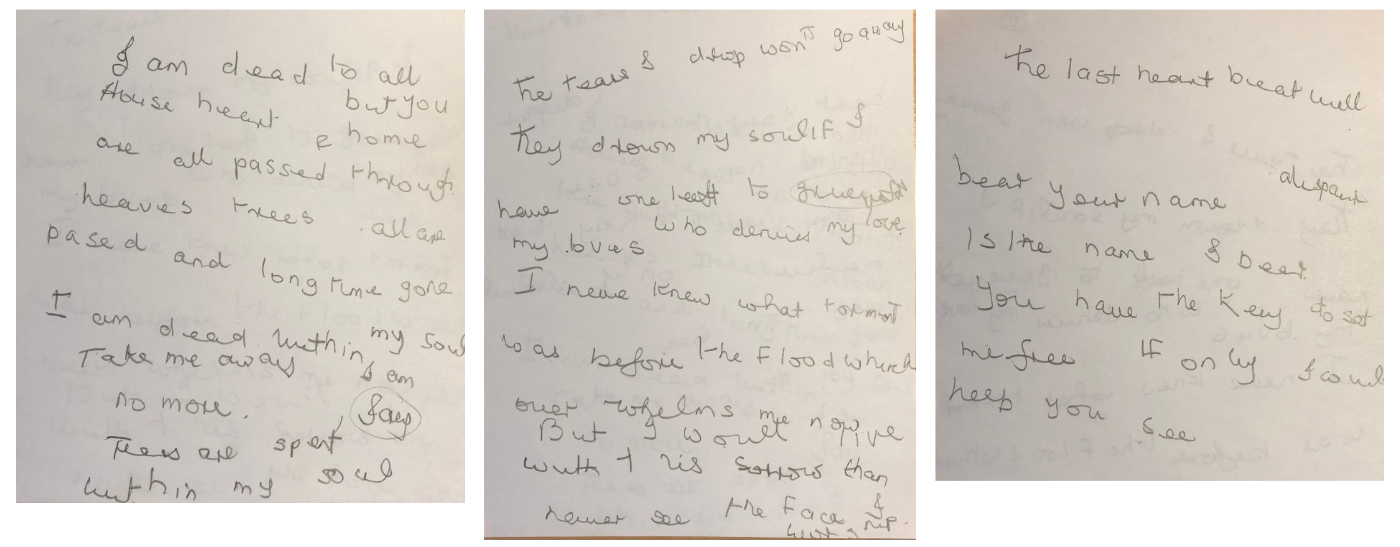 I am dead to all
House heart but you
are all passed through & home
heaves trees all are
pased and long time gone
I am dead within my soul
Take me away I am
no more.
Trees are spent, I cry
within my soul
The tears I drop won't go away
They drown my soul IF I
have one left to
my loves who denies my love
I neve knew what torment
was before the Flood which
over whelms me now
But I woult live
with this sorrow than
never see the Face I
with
The last heart beat will
bear your name
Is the name I bear
You have the Key to set
me free IF only I coul
help you see